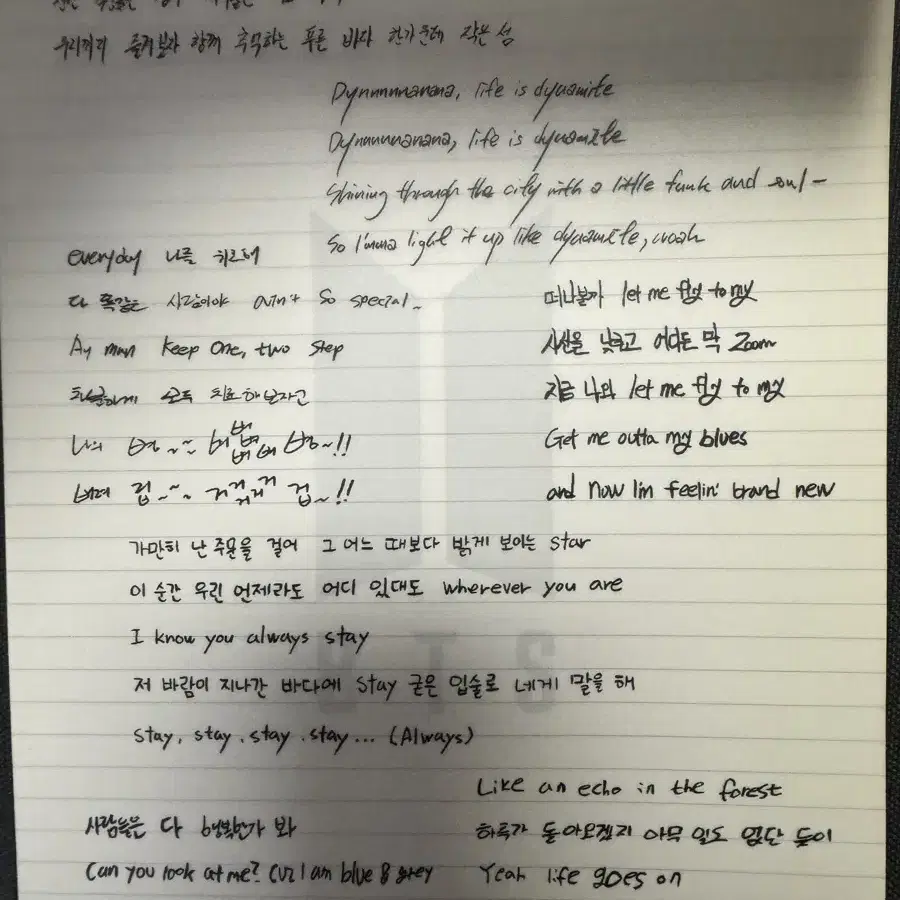 우리끼리 즐겨보자 함께 추억하는 푸른 바다 한가운데 작은 섬
Dynnnnnanana, life is dynamite
Dynnnnnanana, life is dynamite
Shining through the city with a little funk and soul -
So I'mma light it up like dynamite, woah
everyday 나를 위로해
다 똑같은 사람이야 ain't so special
Ay man keep one, two step
차분하게 모두 치료해보자고
나의 병~~~ 벼벼벼벼 병~!!
버려 겁~~~ 거거거거 겁~!!
떠나볼까 let me fly to my
시선을 낮추고 어디든 막 Zoom
지금 나와 let me fly to my
Get me outta my blues
and now I'm feelin' brand new
가만히 난 주문을 걸어 그 어느 때보다 밝게 보이는 star
이 순간 우린 언제라도 어디 있대도 wherever you are
I know you always stay
저 바람이 지나간 바다에 stay 굳은 입술로 네게 말을 해
stay, stay, stay, stay... (Always)
BTS
Like an echo in the forest
하루가 돌아오겠지 아무 일도 없단 듯이
Yeah life goes on
사람들은 다 행복한가 봐
Can you look at me? Cuz I am blue & grey